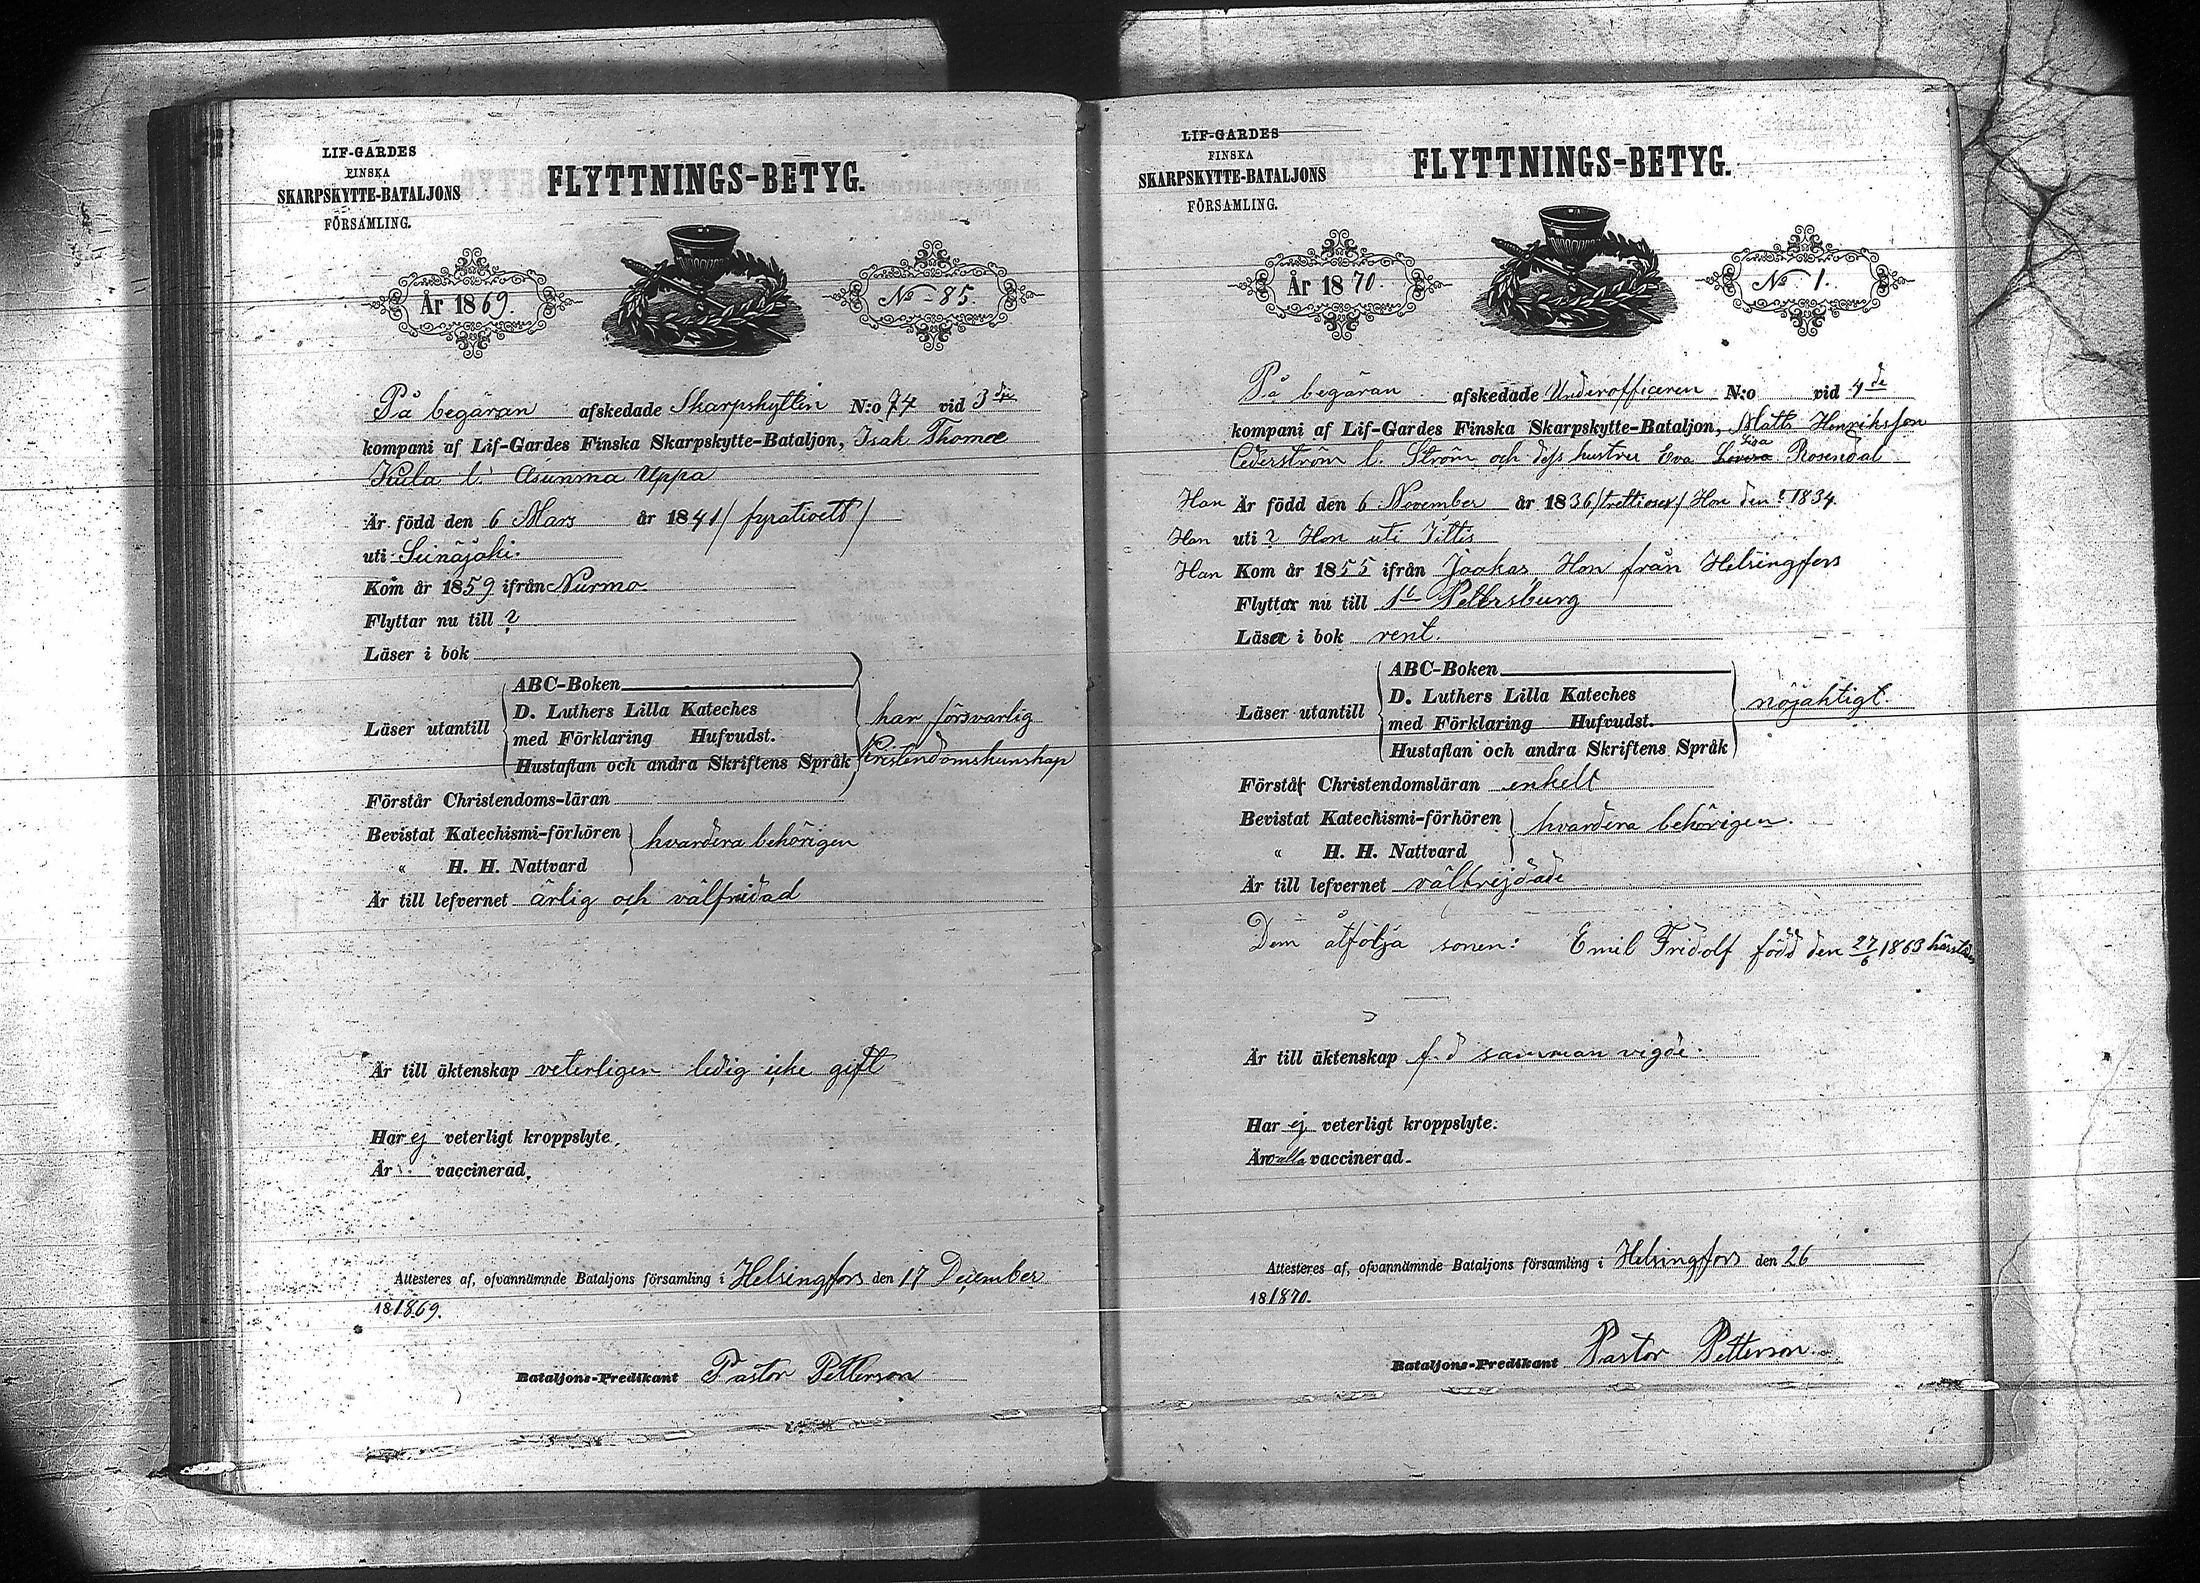 LIF-GARDES
FINSKA
SKARPSKYTTE-BATALJONS
FÖRSAMLING.
FLYTTNINGS-BETYG.
År 1869.
No - 85.
På begäran afskedade Skarpskytten N:o 74 vid 3dje
kompani af Lif-Gardes Finska Skarpskytte-Bataljon, Isak Thomæ
Kula l. Asunma Uppa
Är född den 6 Mars år 1841 / fyratioett /
uti Seinäjoki.
Kom år 1859 ifrån Nurmo.
Flyttar nu till ?
Läser i bok
Läser utantill
ABC-Boken
D. Luthers Lilla Kateches
med Förklaring Hufvudst.
Hustaflan och andra Skriftens Språk
har försvarlig
Kristendomskunskap
Förstår Christendoms-läran
Bevistat Katechismi-förhören
" H. H. Nattvard
hvardera behörigen
Är till lefvernet ärlig och välfrejdad
Är till äktenskap veterligen ledig icke gift
Har ej veterligt kroppslyte.
Är vaccinerad.
Attesteres af, ofvannämnde Bataljons församling i Helsingfors den 17 December
181869.
Bataljons-Predikant Pastor Petterson
LIF-GARDES
FINSKA
SKARPSKYTTE-BATALJONS
FÖRSAMLING.
FLYTTNINGS-BETYG.
År 1870.
No - 1.
På begäran afskedade Underofficeren N:o vid 4de
kompani af Lif-Gardes Finska Skarpskytte-Bataljon, Matts Henriksson
Cederström l. Ström och dess hustru Eva Lisa Rosendal
Han Är född den 6 November år 1836 / trettiosex / Hon den ? 1834
Han uti ? Hon uti Iittis
Han Kom år 1855 ifrån Jaakas, Hon från Helsingfors
Flyttar nu till St Petersburg
Läsa i bok rent.
Läser utantill
ABC-Boken
D. Luthers Lilla Kateches
med Förklaring Hufvudst.
Hustaflan och andra Skriftens Språk
nöjaktigt.
Förstår Christendomsläran enkelt
Bevistat Katechismi-förhören
" H. H. Nattvard
hvardera behörigen.
Är till lefvernet välfrejdade
Dem åtfölja sonen: Emil Fridolf född den 27/6 1863 härstädes
Är till äktenskap f.d sammanvigde.
Har ej veterligt kroppslyte.
Är alla vaccinerad.
Attesteres af, ofvannämnde Bataljons församling i Helsingfors den 26
181870.
Bataljons-Predikant Pastor Petterson